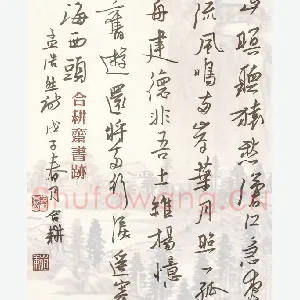 山暝聽猿愁滄江急夜
流風鳴兩岸葉月照一孤
舟建德非吾土維揚憶
舊遊還將兩行淚遙寄
海西頭
合耕齋書跡
孟浩然詩戊子春月合耕